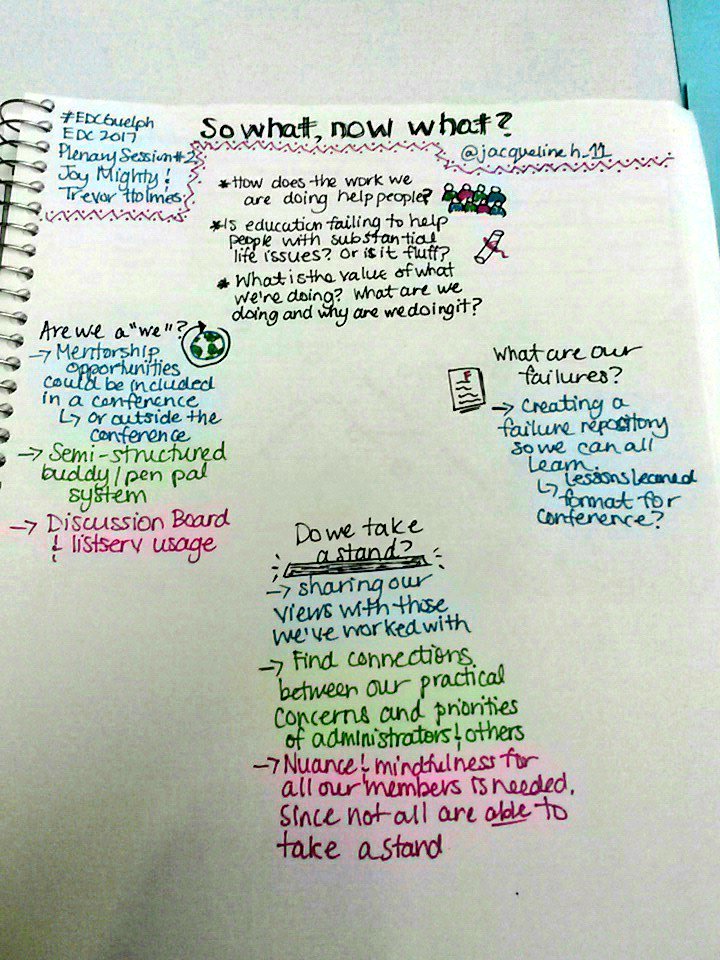 #EDCGuelph
EDC 2017
Plenary Session #2
Joy Mighty &
Trevor Holmes
So what, now what?
@jacquelineh_11
* How does the work we
are doing help people?
* Is education failing to help
people with substantial
life issues? Or is it fluff?
* What is the value of what
we're doing? What are we
doing and why are we doing it?
Are we a "we"?
→ Mentorship
opportunities
could be included
in a conference
↳ or outside the
conference
→ Semi-structured
buddy/pen pal
system
→ Discussion Board
& listserv usage
What are our
failures?
F
→ creating a
failure repository
so we can all
learn.
↳ lessons learned
format for
conference?
Do we take
a stand?
→ sharing our
views with those
we've worked with
→ Find connections
between our practical
concerns and priorities
of administrators & others
→ Nuance & mindfulness for
all our members is needed,
since not all are able to
take a stand